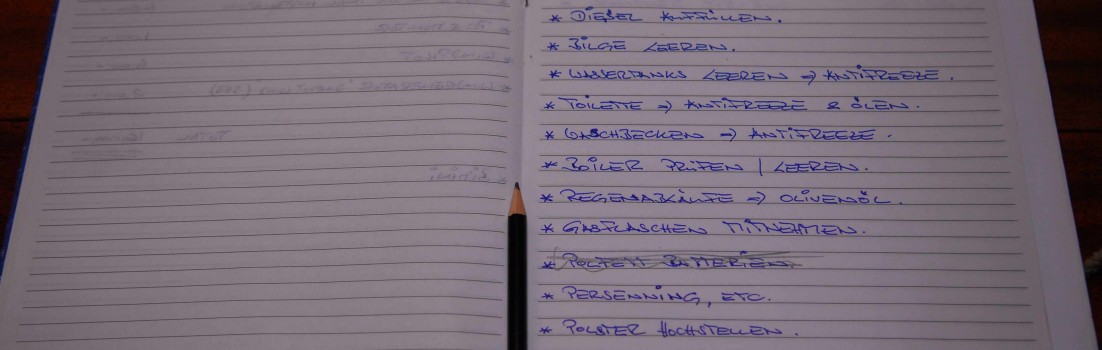 * DIESEL AUFFÜLLEN.
* BILGE LEEREN.
* WASSERTANKS LEEREN => ANTIFREEZE.
* TOILETTE => ANTIFREEZE & ÖLEN.
* WASCHBECKEN => ANTIFREEZE.
* BOILER PRÜFEN / LEEREN.
* REGENABLÄUFE => OLIVENÖL.
* GASFLASCHEN MITNEHMEN.
* BATTERIEN.
* PERSENNING, ETC.
* POLSTER HOCHSTELLEN.